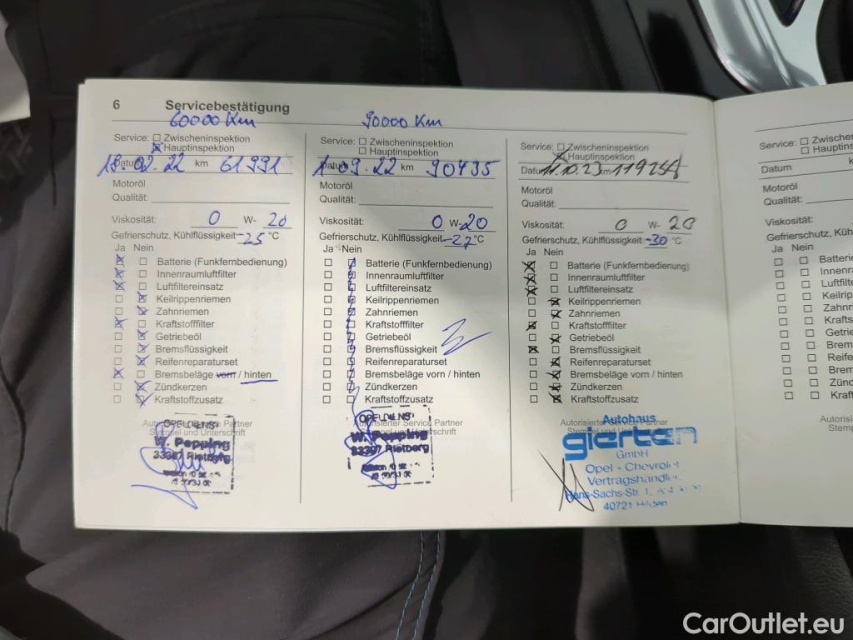 6 Servicebestätigung
60000 Km
Service: Zwischeninspektion
Hauptinspektion
Datum 18.02.22 km 61991
Motoröl
Qualität:
Viskosität: 0 W- 20
Gefrierschutz, Kühlflüssigkeit -25 °C
Ja Nein
Batterie (Funkfernbedienung)
Innenraumluftfilter
Luftfiltereinsatz
Keilrippenriemen
Zahnriemen
Kraftstofffilter
Getriebeöl
Bremsflüssigkeit
Reifenreparaturset
Bremsbeläge vorn / hinten
Zündkerzen
Kraftstoffzusatz
Stempel und Unterschrift
W. Pepping
33397 Rietberg
90000 Km
Service: Zwischeninspektion
Hauptinspektion
09.22 km 90435
Motoröl
Qualität:
Viskosität: 0 W- 20
Gefrierschutz, Kühlflüssigkeit -27 °C
Ja Nein
Batterie (Funkfernbedienung)
Innenraumluftfilter
Luftfiltereinsatz
Keilrippenriemen
Zahnriemen
Kraftstofffilter
Getriebeöl
Bremsflüssigkeit
Reifenreparaturset
Bremsbeläge vorn / hinten
Zündkerzen
Kraftstoffzusatz
Autorisierter Service Partner
W. Pepping
33397 Rietberg
Service: Zwischeninspektion
Hauptinspektion
11.10.23
Motoröl
Qualität:
Viskosität: 0 W- 20
Gefrierschutz, Kühlflüssigkeit -30 °C
Ja Nein
Batterie (Funkfernbedienung)
Innenraumluftfilter
Luftfiltereinsatz
Keilrippenriemen
Zahnriemen
Kraftstofffilter
Getriebeöl
Bremsflüssigkeit
Reifenreparaturset
Bremsbeläge vorn / hinten
Zündkerzen
Kraftstoffzusatz
Autohaus
gierten
GmbH
Opel - Chevrolet
Vertragshändler
Hans-Sachs-Str. 1
40721 Hilden
Service: Zwischen
Hauptins
Datum
Motoröl
Qualität:
Viskosität:
Gefrierschutz, Küh
Ja Nein
Batterie
Innenr
Luftfilt
Keilrip
Zahnr
Krafts
Getrie
Brem
Reife
Brem
Zünd
Kraft
Autorisi
Stemp
CarOutlet.eu